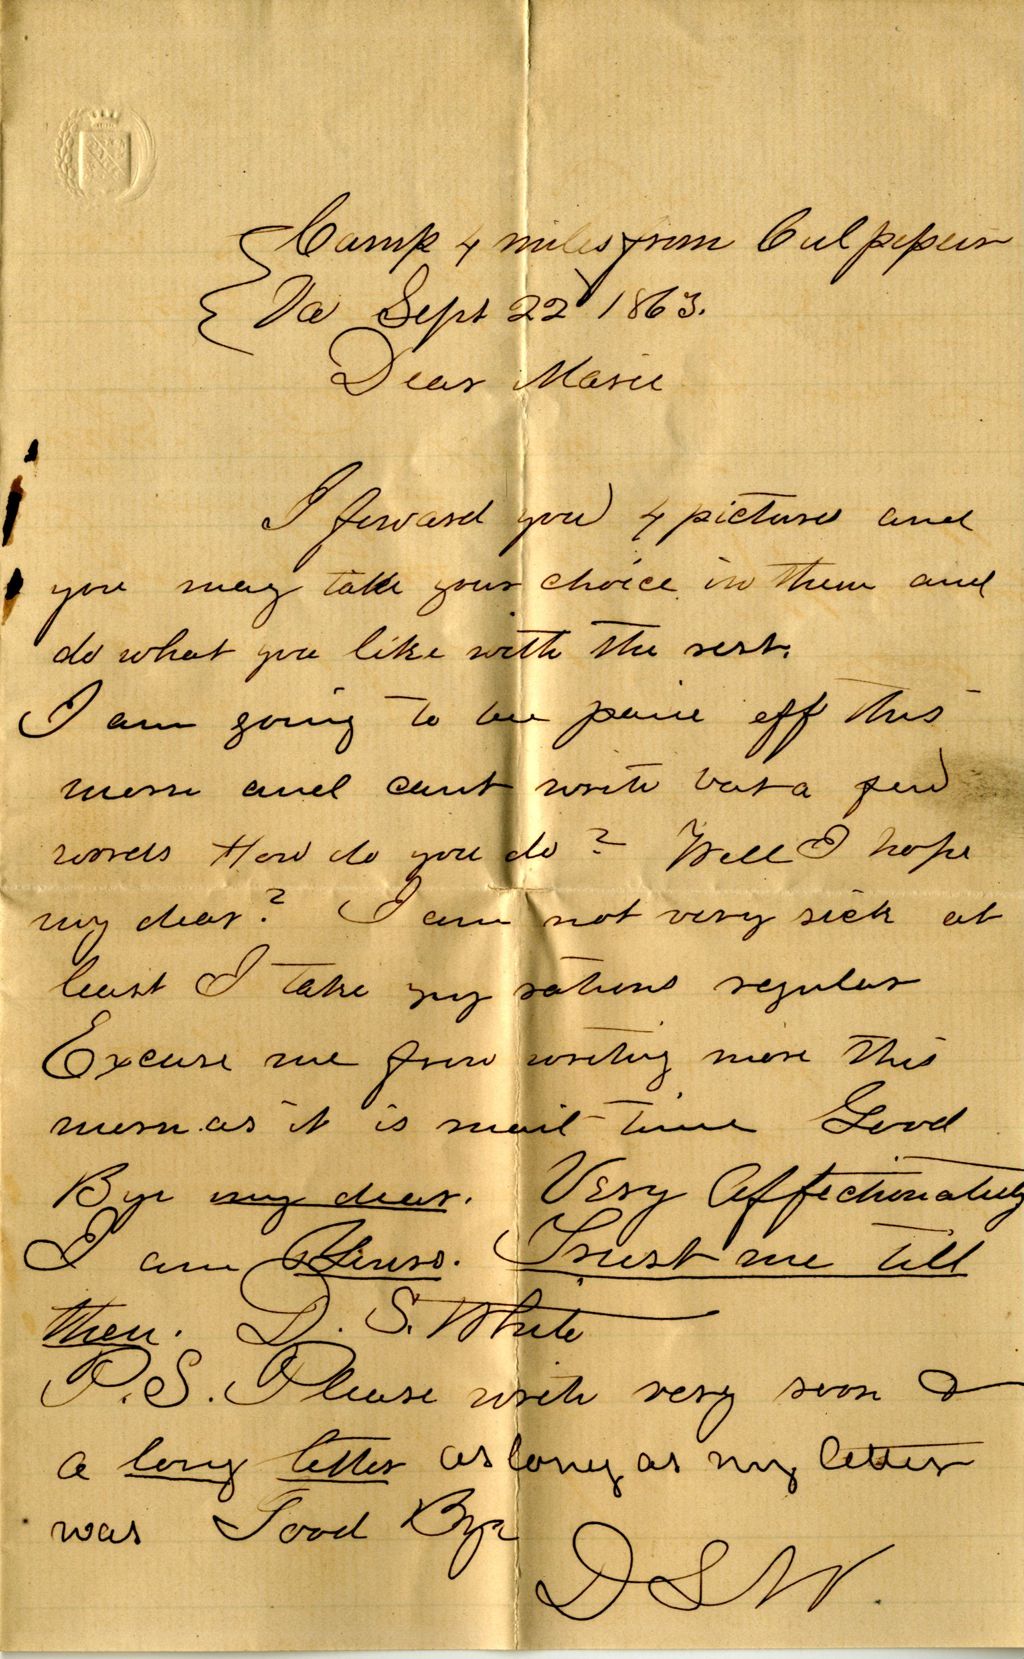 Camp 4 miles from Culpeper
Va Sept 22 1863.
Dear Marie
I forward you 4 pictures and
you may take your choice in them and
do what you like with the rest.
I am going to be paid off this
morn and cant write but a few
words How do you do? Well I hope
my dear? I am not very sick at
least I take my rations regular
Excuse me from writing more this
morn. as it is mail time Good
Bye my dear. Very Affectionately
I am Yours. Trust me till
then. D. S. White
P.S. Please write very soon &
a long letter as long as my letter
was Good Bye
DSW.